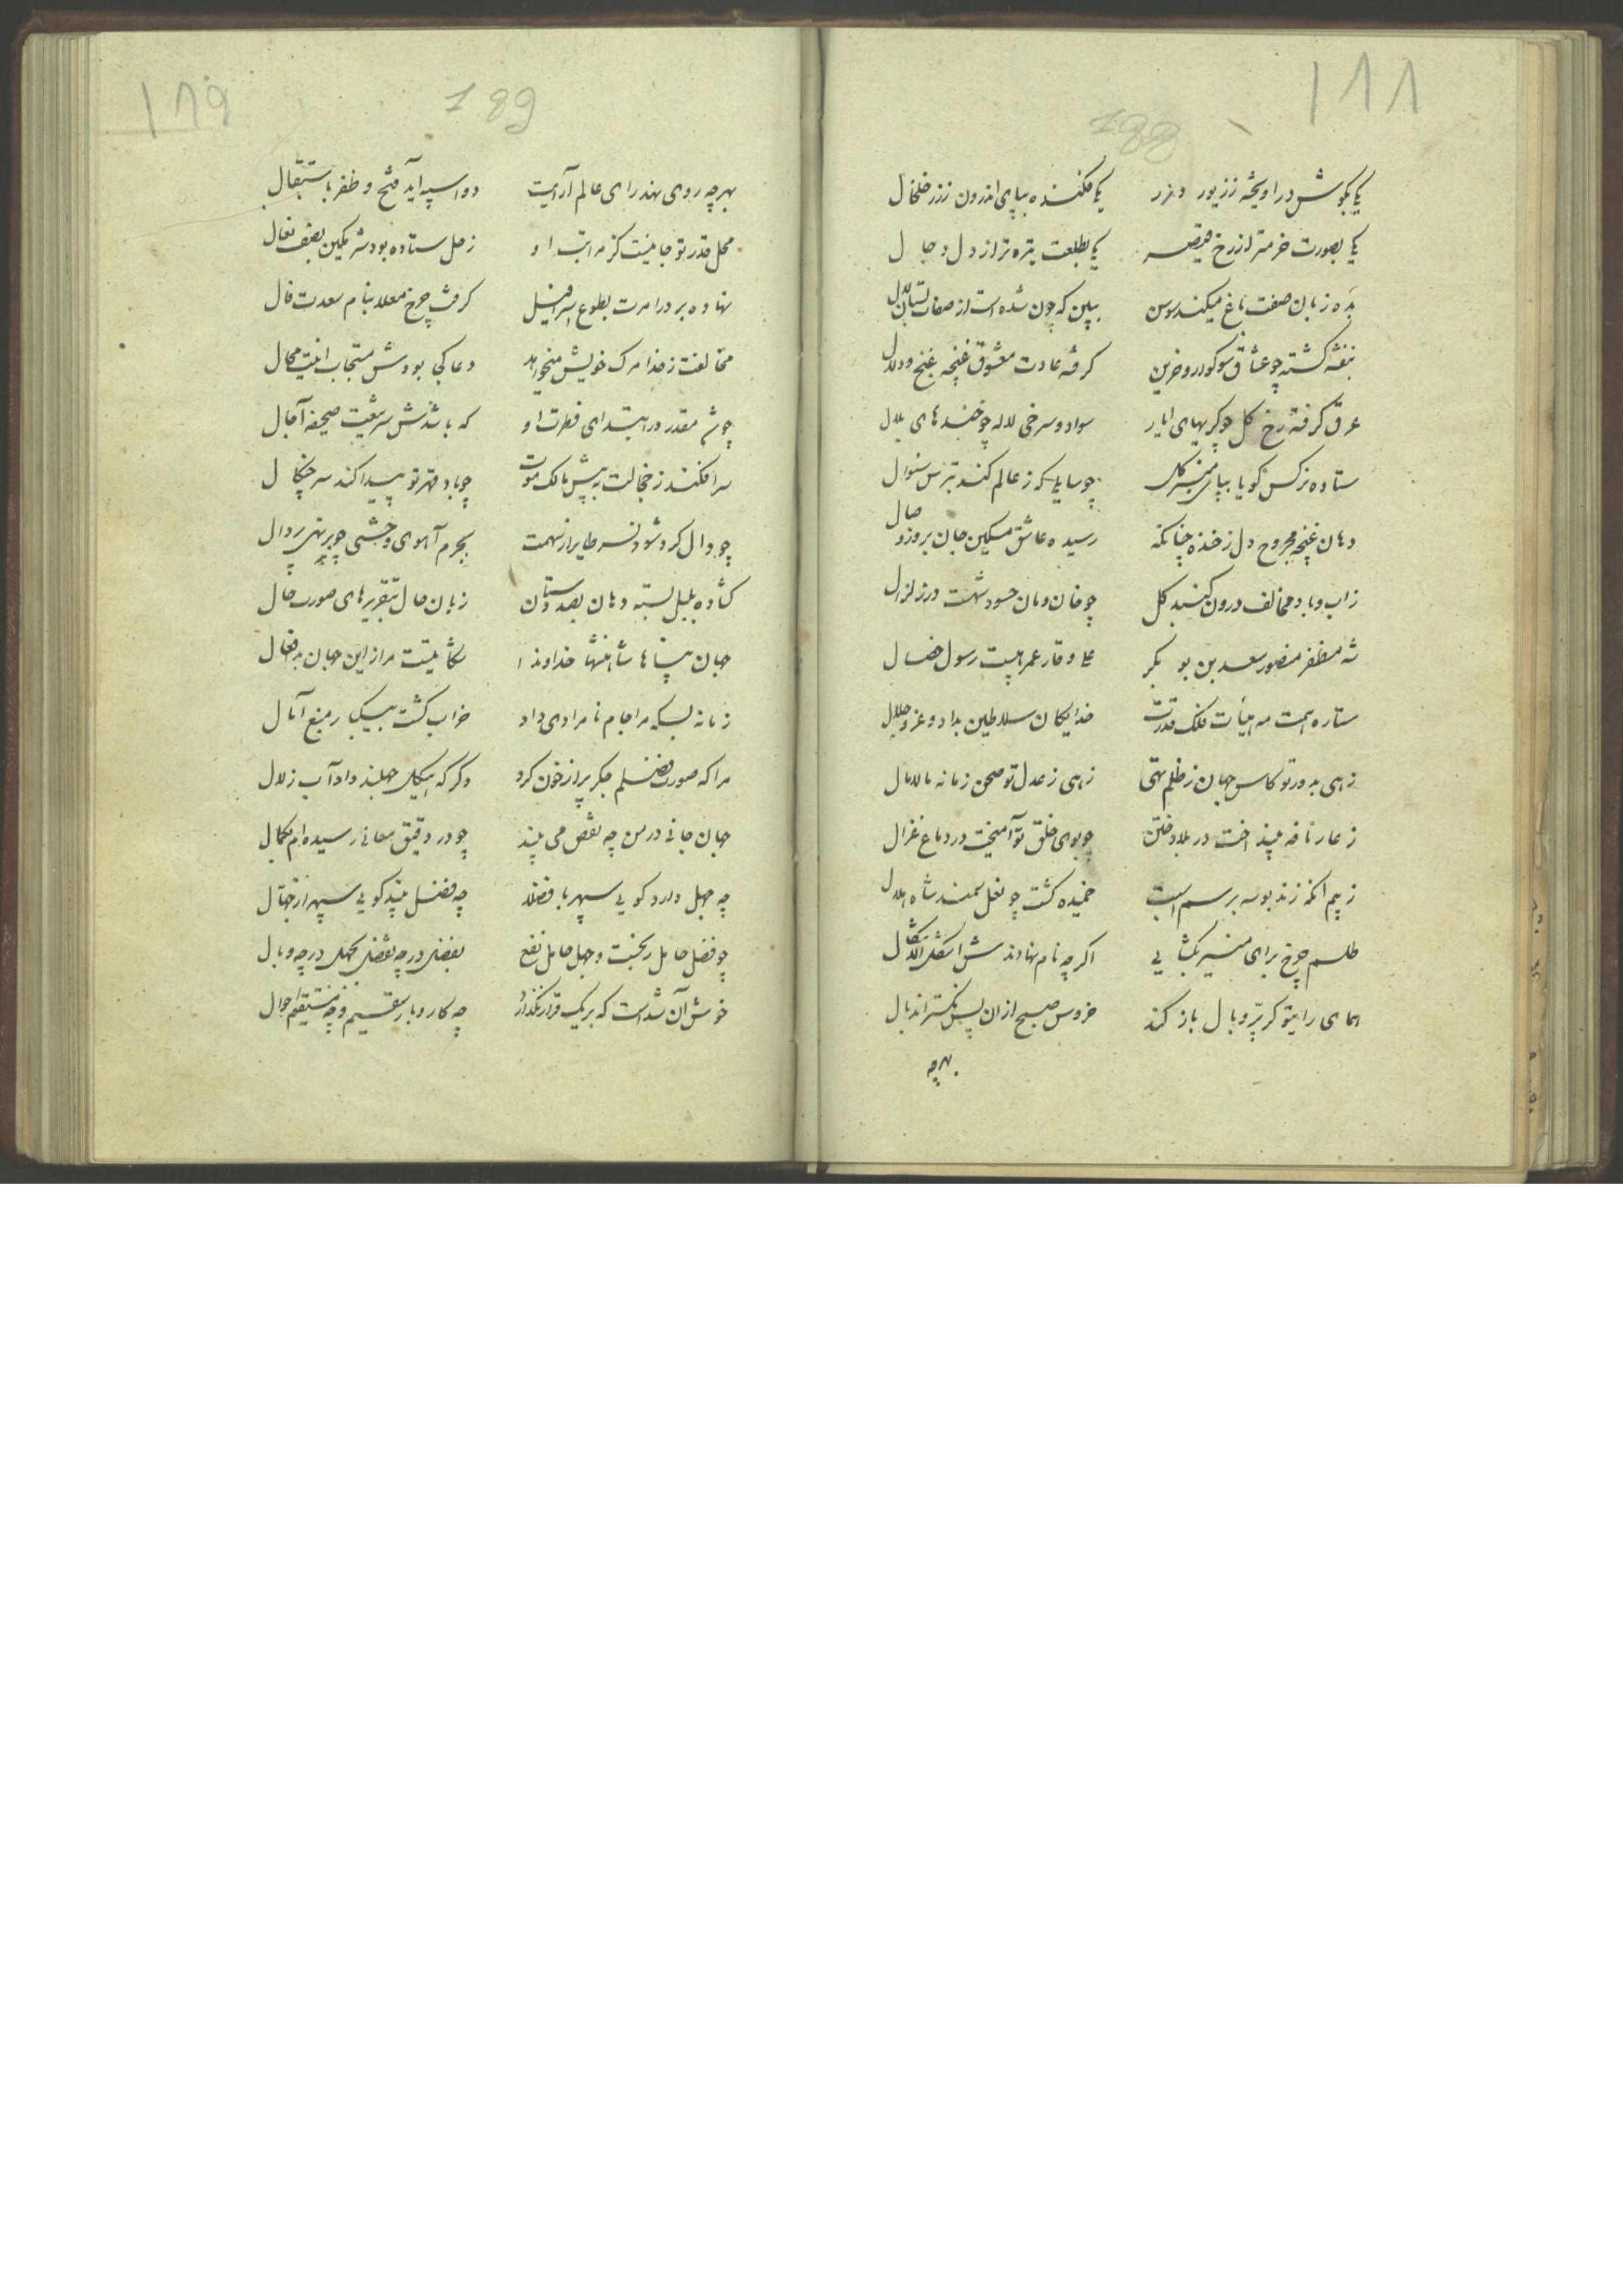 ۱۸۸
188
یکی بگوش در آویخته ز زیور و زر یکی فکنده بپای اندرون ز زر خلخال
یکی بصورت خرمتر از رخ یکی بطلعت تیره تر از دل دجال
بده زبان صفت باغ میکند سوسن ببین که چون شده است از صفات لال
بنفشه گشته چو عشاق سوکوار و حزین گرفته عادت معشوق غنچه غنج و دلال
عرق گرفته رخ گل چو سواد و سرخی لاله چو خندهای بلال
ستاده نرگس گویا بپای منبر گل چو سایلی که ز عالم کند بترس سئوال
دهان غنچه مجروح دل ز خنده چنانکه رسیده عاشق مسکین جان بروز وصال
ز آب و باد مخالف درون گنبد گل چو خان و مان حسود شهست در زلزال
شه مظفر منصور سعد بن بو بکر علی وقار عمر هیبت رسول خصال
ستاره همت مه هیأت فلک قدرت خدایگان سلاطین بداد و عز و جلال
زهی بدور تو کاس جهان ز ظلم تهی زهی ز عدل تو صحن زمانه مالامال
ز عار نافه بینداخت در بلاد ختن چو بوی خلق تو آمیخت در دماغ غزال
ز بیم آنکه زند بوسه بر سم اسبت خمیده گشت چو نعل سمند شاه هلال
طلسم چرخ برای منیر بگشایی اگرچه نام نهادند اشکل الاشکال
همای رایتو گر پر و بال باز کند خروس صبح از آن پس نگستراند بال
بهرچه
۱۸۹
189
بهرچه روی نهد رای عالم آرایت دو اسپه آید فتح و ظفر باستقبال
محل قدر تو جائیست کز مراتب او زحل ستاده بود مسکین بصف نعال
نهاده بر در امرت بطوع اسرافیل گرفته چرخ معلا بنام سعدت فال
مخالفت ز خدا مرگ خویش میخواهد دعا کجا بودش مستجاب اینت محال
چو مقدر در ابتدای فطرت او که باشدش صحیفه آجال
سر افکند ز خجالت به پیش مالک موت چو باد قهر تو پیدا کند سر چنگال
چو دال گردد شود نسر طایر از نهمت بجرم آهوی وحشی چو بر نهی بر دال
گشاده بلبل بسته دهان بصد دستان زبان حال بتقریرهای صورت حال
جهان پناها شاهنشها خداوندا شکایتیست مرا زین جهان بد افعال
زمانه بسکه مرا جام نامرادی داد خراب گشت بیکبار منبع آمال
مرا که صورت فضلم جگر پر از خون کرد دگر که هیکل جهلند داد آب زلال
جهان جانی در من چه نقص می بیند چو در دقیق معانی رسیده ام بکمال
چه جهل دارد گویی سپهر با فضلا چه فضل بیند گویی سپهر از جهال
چو فضل حامل رنجست و جهل حامل نفع بفضل در چه بفضل بجهل در چه وبال
خوش آن شداست که بر یک قرار نگذارد چه کار و بار سقیم و چه مستقیم احوال